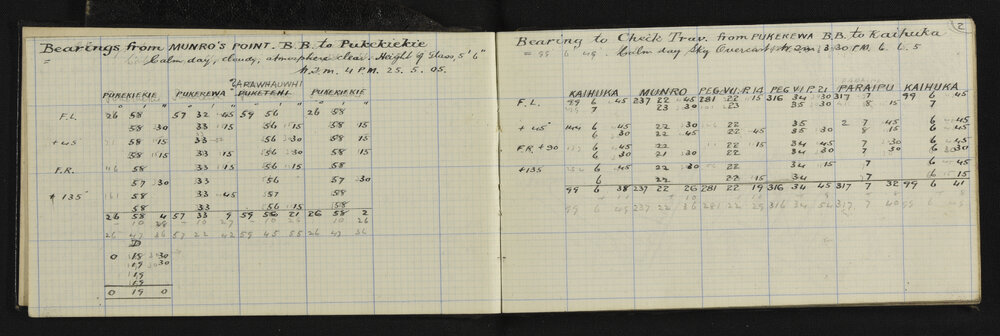 Bearings from MUNRO'S POINT. B.B. to Pukekiekie
= Calm day, cloudy, atmosphere clear. Height of Glass, 5' 6"
4 P.M. 25. 5. 05.
PUKEKIEKIE PUKEREWA PUKETEHI PUKEKIEKIE
° ' " ° ' " ° ' " ° ' "
F.L. 26 58 57 32 45 59 56 26 58
58 30 33 15 56 15 58 15
+ 45 58 15 33 56 30 58
58 15 33 15 56 30 58 15
F.R. 58 33 56 58
57 30 33 56 57 30
+ 135 58 33 45 57 58
58 33 56 15 58
26 58 4 57 33 9 59 56 21 26 58 2
26 47 36 57 22 42 59 45 55 26 47 36
0 18 30
19 30
19
19
0 19 0
2
Bearing to Check Trav. from PUKEREWA B.B. to Kaihuka
Calm day Sky Overcast 3.30 P.M. 6. 6. 5
KAIHUKA MUNRO PEG.VII.P.14 PEG VI P. 21 PARAIPU KAIHUKA
F.L. 99 6 45 237 22 45 281 22 15 316 34 30 317 7 99 6 45
7 23 30 23 35 30 8 15 7
+ 45° 6 45 22 30 22 35 2 7 45 6 45
6 30 22 45 22 45 35 30 8 15 6 45
F.R. + 90 6 30 22 22 15 34 45 7 30 6 45
6 30 21 30 22 34 30 7 30 6 30
+135 6 45 22 30 22 34 15 7 6 45
6 22 22 15 34 7 6 15
99 6 38 237 22 26 281 22 19 316 34 45 317 7 32 99 6 41
99 6 48 237 22 36 281 22 29 316 34 54 317 7 40 99 6